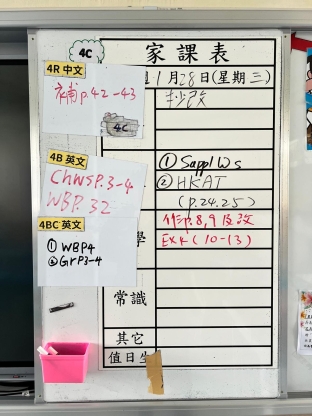 4C
家課表
4R 中文
1月28日(星期三)
補p.42-43
抄改
4C
4B 英文
ChWSP.3-4
WBP.32
① Suppl Ws
② HKAT
(p.24.25)
4BC 英文
① WBP4
② GrP3-4
學
作p.8,9及改
Ex4(10-13)
常識
其它
值日生